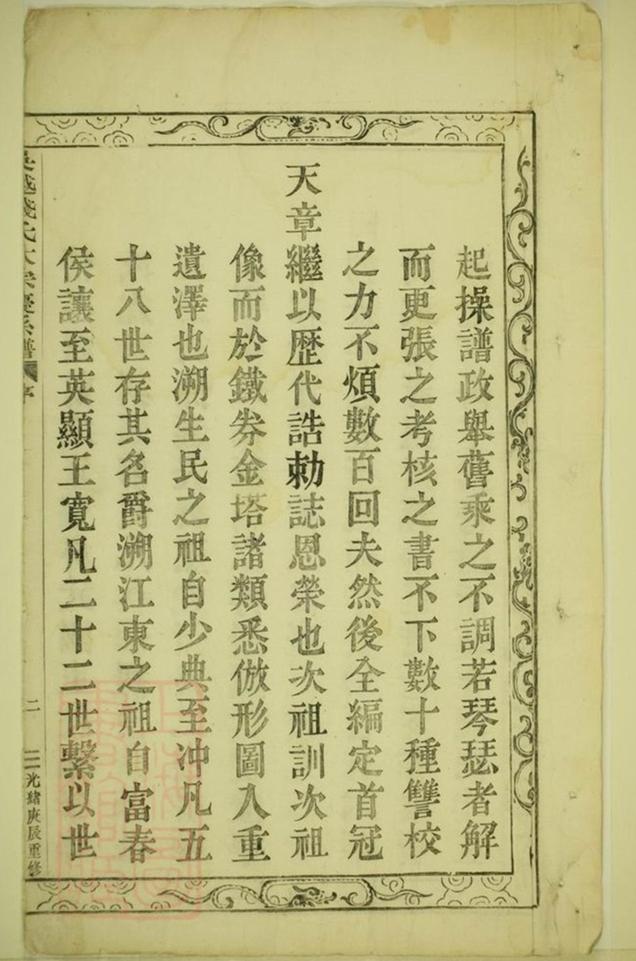 起操譜政舉舊乘之不調若琴瑟者解
而更張之考核之書不下數十種讐校
之力不煩數百回夫然後全編定首冠
天章繼以歷代誥勅誌恩榮也次祖訓次祖
像而於鐵券金塔諸類悉倣形圖入重
遺澤也溯生民之祖自少典至冲凡五
十八世存其名爵溯江東之祖自富春
侯讓至英顯王寬凡二十二世繫以世
越錢氏大宗慶系譜 序 二 光緒庚辰重修